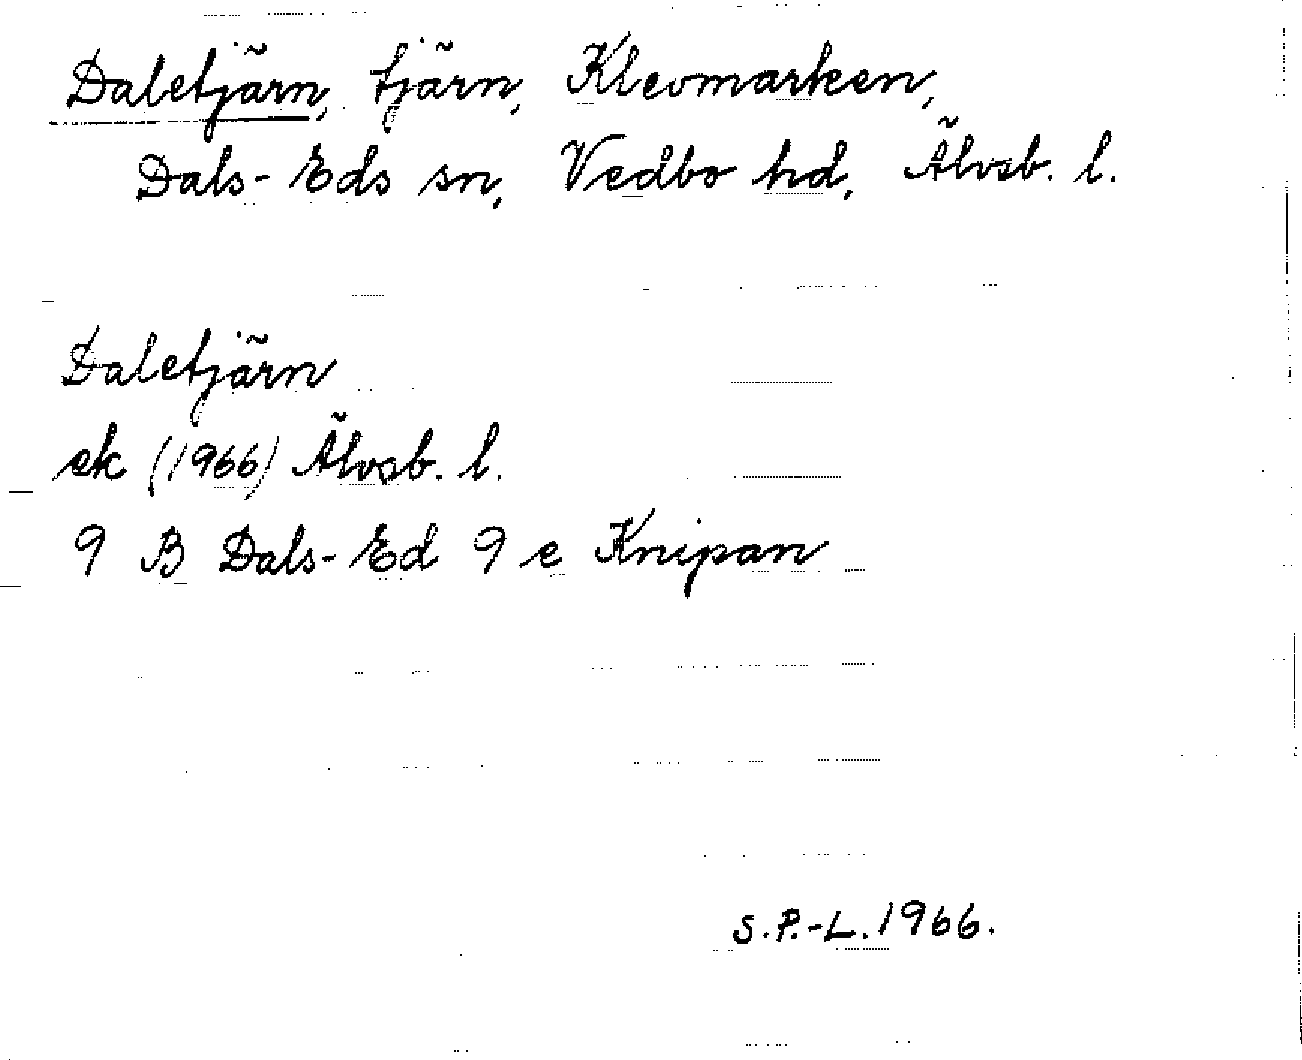 Daletjärn, tjärn, Klevmarken,
Dals-Eds sn, Vedbo hd, Älvsb. l.
Daletjärn
ek (1966) Älvsb. l.
9 B Dals-Ed 9 e Knipan
S.P.-L. 1966.